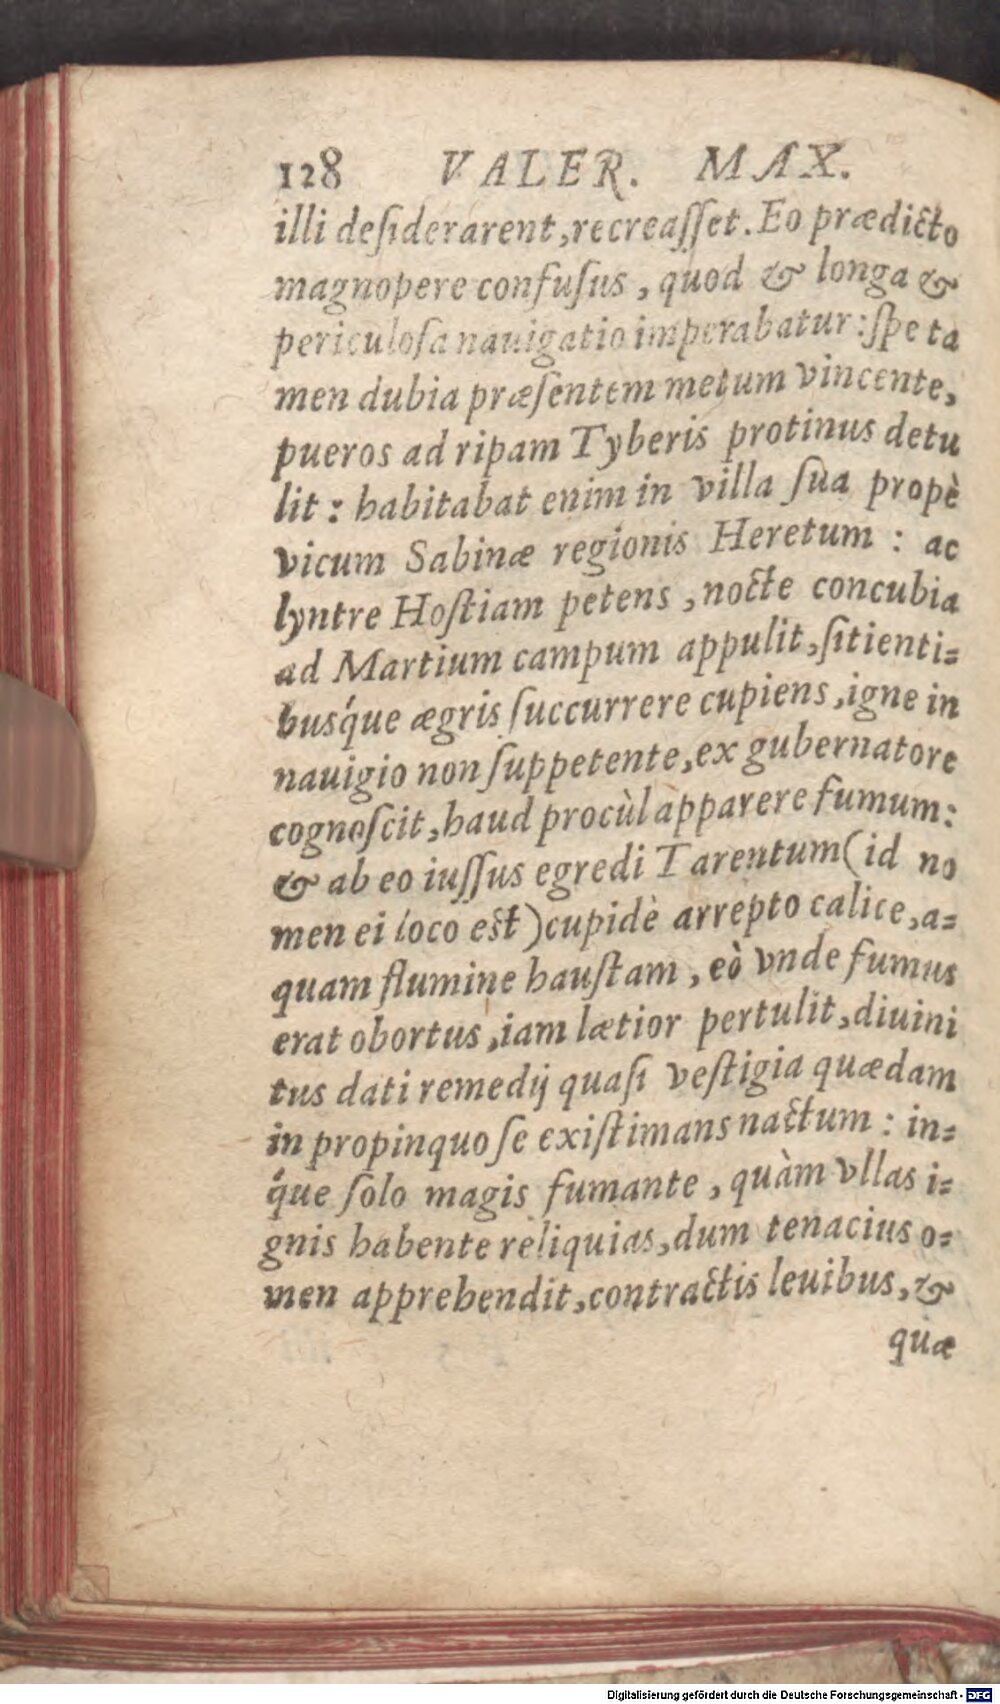 128 VALER. MAX.
illi deſiderarent, recreaſſet. Eo prædicto
magnopere confuſus, quod & longa &
periculoſa nauigatio imperabatur: ſpe ta
men dubia præſentem metum vincente,
pueros ad ripam Tyberis protinus detu
lit: habitabat enim in villa ſua propè
vicum Sabinæ regionis Heretum: ac
lyntre Hoſtiam petens, nocte concubia
ad Martium campum appulit, ſitienti=
buśque ægris ſuccurrere cupiens, igne in
nauigio non ſuppetente, ex gubernatore
cognoſcit, haud procùl apparere fumum:
& ab eo iuſſus egredi Tarentum (id no
men ei loco eſt) cupidè arrepto calice, a=
quam flumine hauſtam, eò vnde fumus
erat obortus, iam lætior pertulit, diuini
tus dati remedij quaſi veſtigia quædam
in propinquo ſe exiſtimans nactum: in=
q́ue ſolo magis fumante, quàm vllas i=
gnis habente reliquias, dum tenacius o=
men apprehendit, contractis leuibus, &
quæ
Digitalisierung gefördert durch die Deutsche Forschungsgemeinschaft - DFG